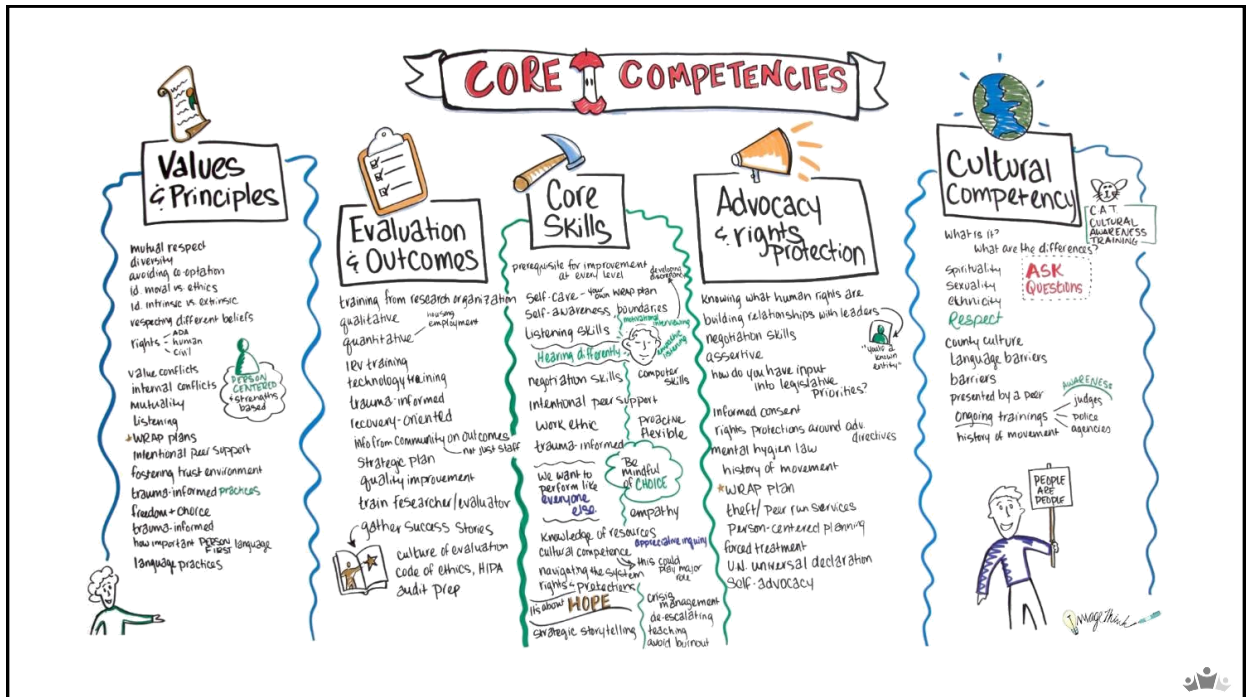 CORE COMPETENCIES
Values
& Principles
mutual respect
diversity
avoiding co-optation
id. moral vs. ethics
id. intrinsic vs. extrinsic
respecting different beliefs
rights
ADA
human
civil
value conflicts
internal conflicts
mutuality
listening
WRAP plans
intentional peer support
fostering trust environment
trauma-informed practices
freedom + choice
trauma-informed
how important PERSON FIRST language
language practices
PERSON
CENTERED
+ strengths
based
Evaluation
& Outcomes
training from research organization
qualitative
housing
employment
quantitative
IRV training
technology training
trauma-informed
recovery-oriented
info from community on outcomes
not just staff
strategic plan
quality improvement
train researcher/evaluator
gather success stories
culture of evaluation
code of ethics, HIPA
audit prep
Core
Skills
prerequisite for improvement
at every level
developing
discrepancy
self-care - your own WRAP plan
self-awareness, boundaries
motivational
interviewing
Listening skills
empathic
listening
Hearing differently
negotiation skills
computer
skills
intentional peer support
work ethic
proactive
flexible
trauma-informed
We want to
perform like
everyone
else
Be
mindful
of CHOICE
empathy
knowledge of resources
appreciative inquiry
cultural competence
this could
play major
role
navigating the system
rights & protections
its about HOPE
strategic storytelling
crisis
management
de-escalating
teaching
avoid burnout
Advocacy
& rights
protection
knowing what human rights are
building relationships with leaders
negotiation skills
assertive
"you're a
known
entity"
how do you have input
into legislative
priorities?
informed consent
rights protections around adv.
directives
mental hygien law
history of movement
WRAP plan
theft/ Peer run services
Person-centered planning
forced treatment
U.N. universal declaration
self-advocacy
Cultural
Competency
C.A.T.
CULTURAL
AWARENESS
TRAINING
what is it?
what are the differences?
spirituality
sexuality
ethnicity
Respect
ASK
QUESTIONS
county culture
language barriers
barriers
presented by a peer
ongoing trainings
history of movement
AWARENESS
judges
police
agencies
PEOPLE
ARE
PEOPLE
ImageThink